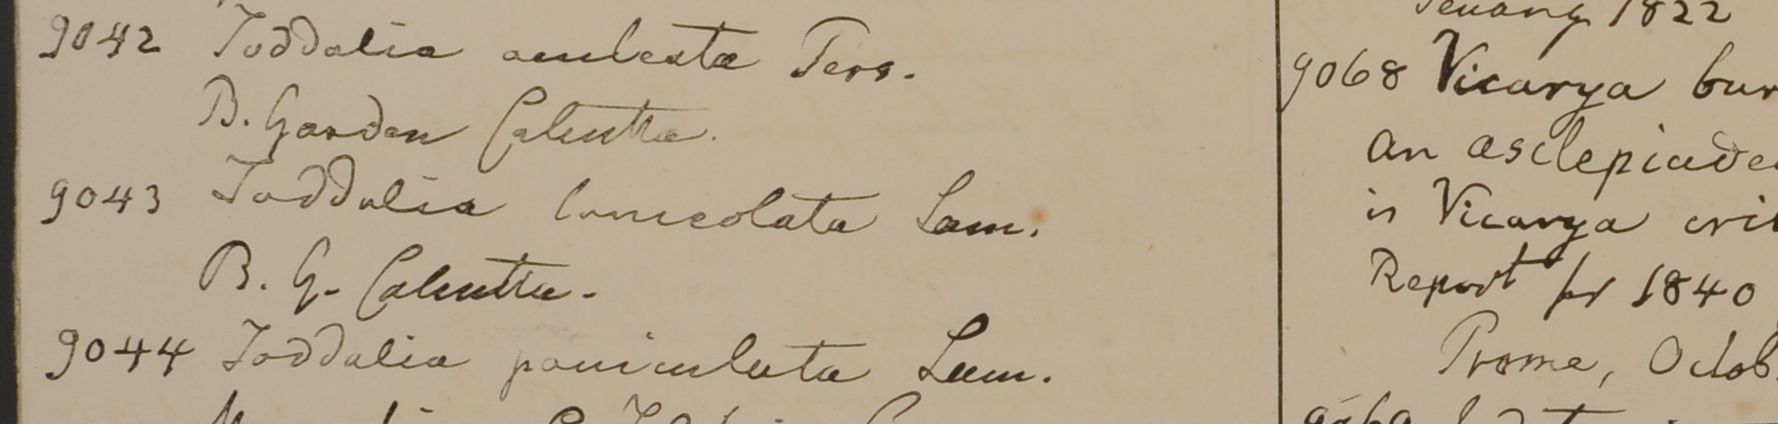 9042 Toddalia aculeata Pers.
B. Garden Calcutta.
9043 Toddalia lanceolata Lam.
B. G. Calcutta.
9044 Toddalia paniculata Lam.
Penang 1822
9068 Vicarya bur
an asclepiade
is Vicarya cri
Report for 1840
Prome, Octob